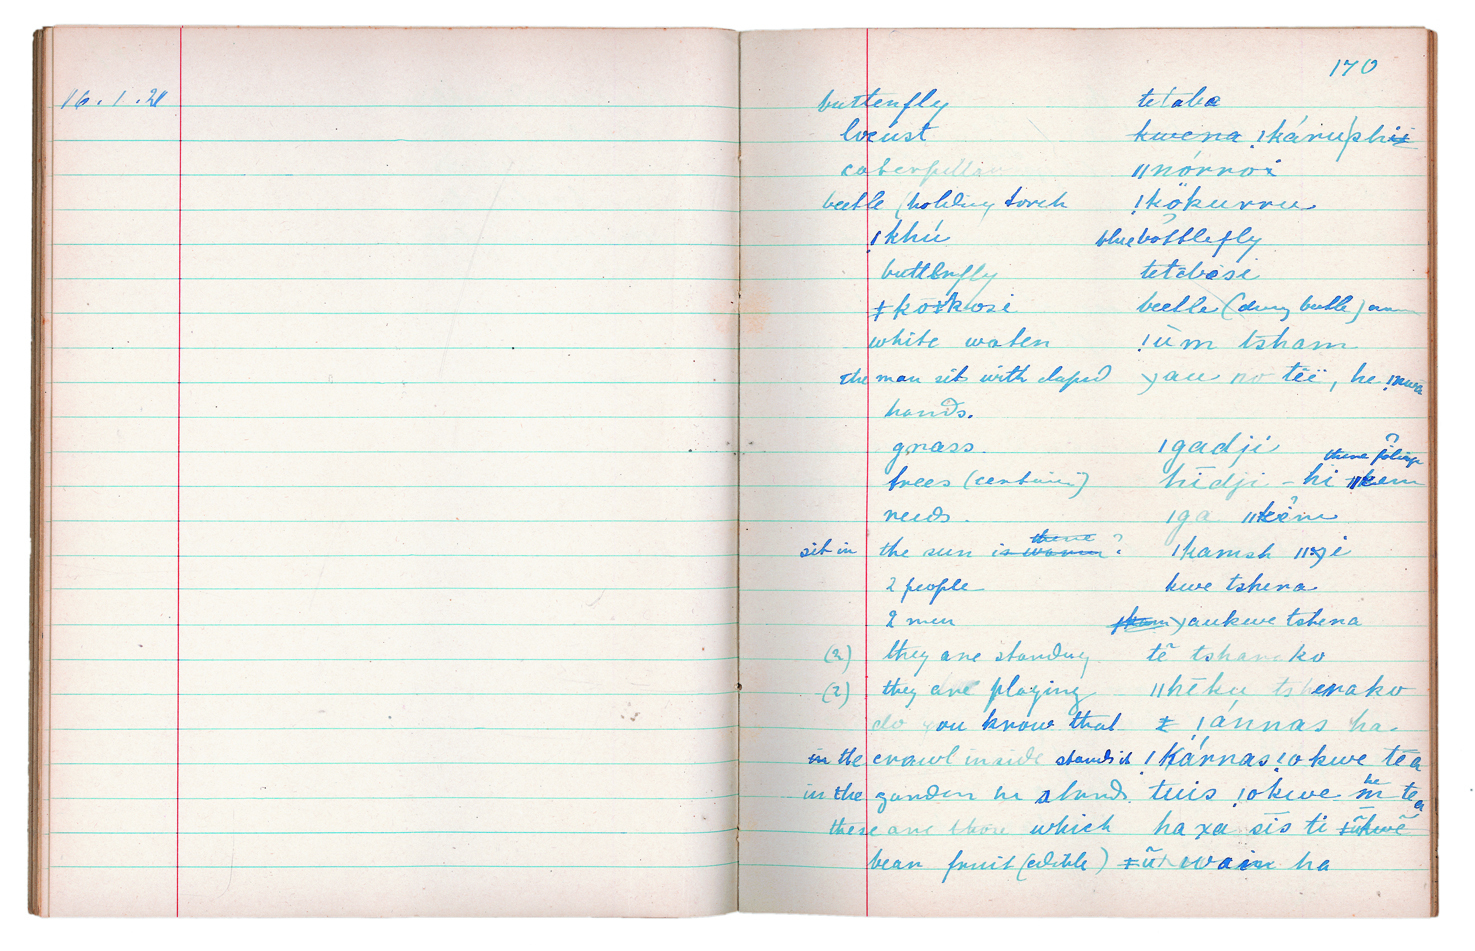 16.1.21
170
butterfly tetaba
locust kwena !káru|shii
caterpillar ǁnórroi
beetle (holding torch !kökurru
!khú bluebottlefly
butterfly tetabesi
ǂkōxkwosi beetle (dung beetle)
white water !ùm tsham
the man sit with claped au no tëï, he !nwa
hands.
grass. |gadji
there ?
trees (certain) hīdji – hi ǁkem
reeds. |ga ǁkêm
there
sit in the sun is warm ? |kamsh ǁxgi
2 people kwe tshera
2 men aukwe tshera
(2) they are standing tẽ tsharako
(2) they are playing ǁhēku tsherako
do you know that ǂ |ánnas ha.
in the crawl inside stands it !Kárnas!okwe tēa
he
in the garden he stands. tuis !okwe m tea
there are those which ha xa sīs ti ǂũkwē
bear fruit (edible) ǂũ wain ha